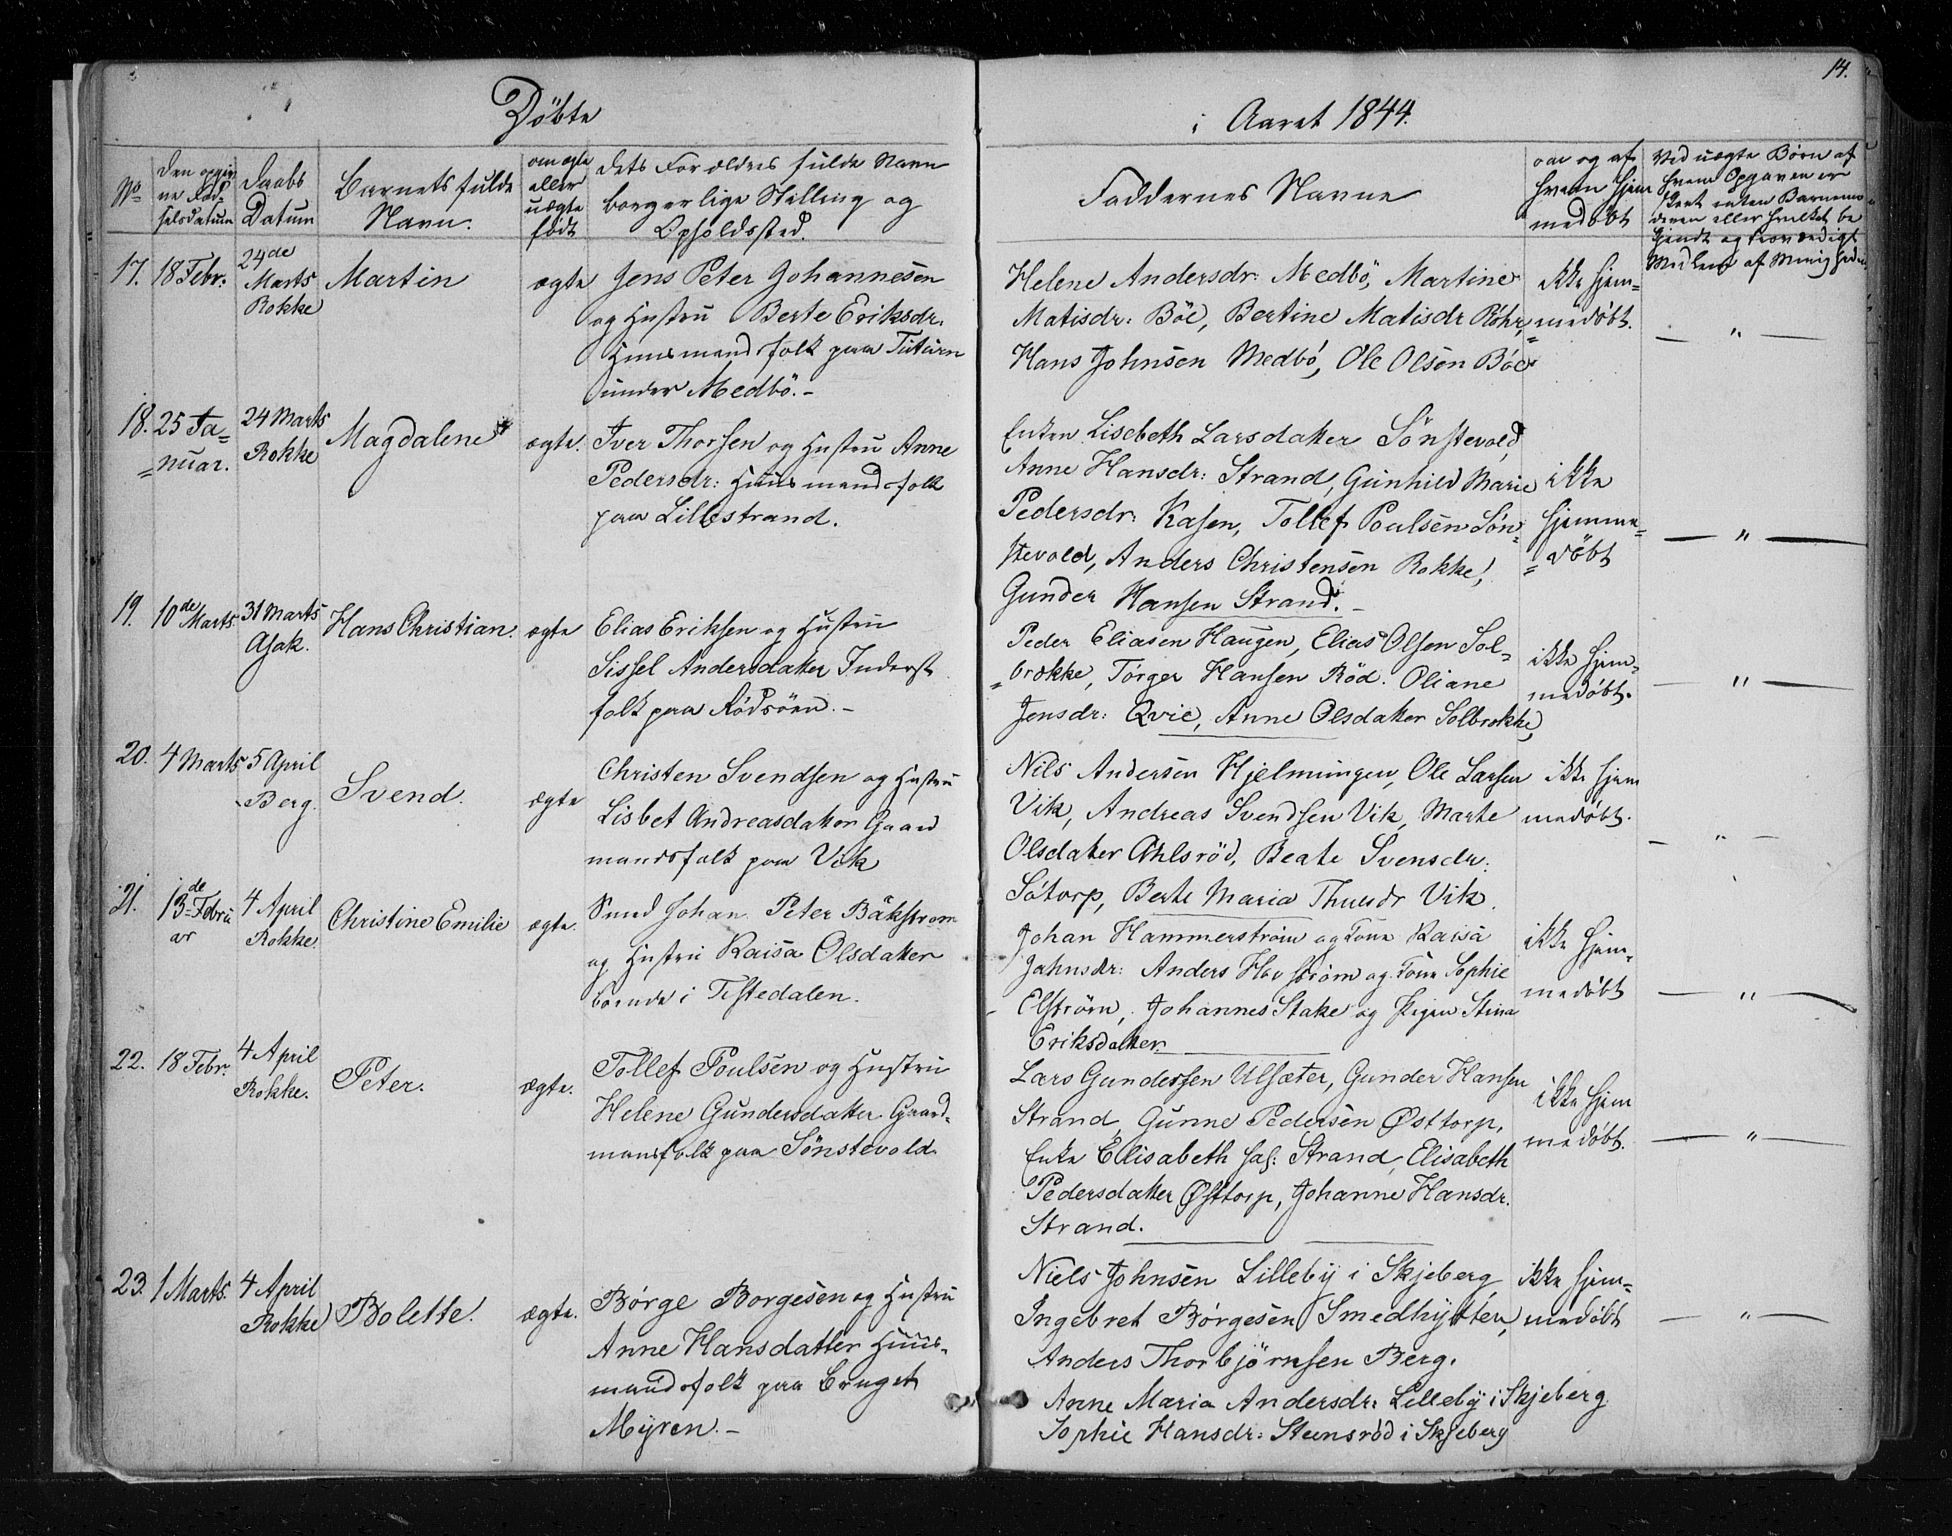 Döbte
i Aaret 1844.
14.
No
Den opgiv
ne Fød=
selsdatum
Daabs
Datum
Barnets fulde
Navn.
om ægte
eller
uægte
født
dets Forældres fulde Navn
borgerlige Stilling og
Opholdssted.
Faddernes Navne
om og af
hvem hjem
medøbt
Ved uægte Børn af
hvem Opgaven er
skeet enten Barnemo
deren eller hvilket be
kjendt og troværdigt
Medlem af Menigheden
17.
18 Febr.
24de
Marts
Rokke
Martin
ægte
Jens Peter Johannesen
og Hustru Berte Eriksdr.
Huusmandsfolk paa
under Medbö. -
Helene Andersdr: Medbö, Martine
Matisdr: Böe, Bertine Matisdr Röhr,
Hans Johnsen Medbö, Ole Olsen Böe
ikke hjem=
=medøbt.
— " —
18.
25 Ja=
=nuar.
24 Marts
Rokke
Magdalene
ægte.
Iver Thorsen og Hustru Anne
Pedersdr: Huusmandsfolk
paa Lillestrand.
Enken Lisebeth Larsdatter Sönstevold,
Anne Hansdr: Strand, Gunhild Marie
Pedersdr: Kasen, Tollef Poulsen Sön=
stevold, Anders Christensen Rokke,
Gunder Hansen Strand. -
ikke
hjemme=
=döbt
— " —
19.
10de Marts.
31 Marts
Asak.
Hans Christian.
ægte
Elias Eriksen og Hustru
Sissel Andersdatter Inderst
folk paa Rödsöen. -
Peder Eliasen Haugen, Elias Olsen Sol=
=brække, Törger Hansen Röd. Oliane
Jensdr: Qvie, Anne Olsdatter Solbrække,
ikke hjem=
medøbt.
— " —
20.
4 Marts
5 April
Berg.
Svend.
ægte
Christen Svendsen og Hustru
Lisbet Andreasdatter Gaard
mandsfolk paa Vik
Nils Andersen Hjelmungen, Ole Larsen
Vik, Andreas Svendsen Vik, Marte
Olsdatter Ahlsröd, Beate Svensdr:
Sötorp, Berte Maria Thuesdr Vik.
ikke hjem
medøbt.
— " —
21.
13de Febru
ar
4 April
Rokke.
Christine Emilie
ægte.
Smed Johan Peter Bäkström
og Hustru Kaisa Olsdatter
boende i Tistedalen.
Johan Hammerström og Kone Kaisa
Jahnsdr: Anders Havström og Kone Sophie
Elström, Johannes Stake og Pigen Stina
Eriksdatter.
ikke hjem=
medøbt
— " —
22.
18 Febr.
4 April
Rokke.
Peter.
ægte.
Tollef Poulsen og Hustru
Helene Gundersdatter Gaard=
mansfolk paa Sönstevold.
Lars Gundersen Ulsæter, Gunder Hansen
Strand, Gunne Pedersen Østtorp,
Enke Elisabeth Strand, Elisabeth
Pedersdatter Østtorp, Johanne Hansdr.
Strand.
ikke hjem
medøbt.
— " —
23.
1 Marts.
4 April
Rokke
Bolette.
ægte.
Börge Borgesen og Hustru
Anne Hansdatter Huus=
mandsfolk paa Berget
Myren. -
Niels Johnsen Lilleby i Skjeberg,
Ingebret Börgesen Smedhytten,
Anders Thorbjörnsen Berg.
Anne Maria Andersdr: Lilleby i Skjeberg
Sophie Hansdr: Steensröd i Skjeberg
ikke hjem=
medøbt
— " —